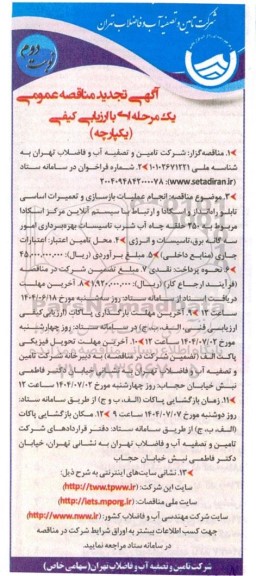 شرکت تامین و تصفیه آب و فاضلاب تهران
نوبت دوم
آگهی تجدید مناقصه عمومی
یک مرحله ای با ارزیابی کیفی
(یکپارچه)
۱. مناقصه گزار: شرکت تامین و تصفیه آب و فاضلاب تهران به
شناسه ملی ۱۰۱۰۲۶۷۱۲۲۱ ۲. شماره فراخوان در سامانه ستاد
(www.setadiran.ir): ۲۰۰۴۰۹۴۸۴۲۰۰۰۰۷۸
۳. موضوع مناقصه: انجام عملیات بازسازی و تعمیرات اساسی
تابلو رادیو اسکادا و ارتباط با سیستم آنلاین مرکز اسکادا
مربوط به ۲۵۰ حلقه چاه آب شرب تاسیسات بهره برداری امور
به گانه برق، تاسیسات و انرژی ۴. محل تامین اعتبار: اعتبارات
جاری (منابع داخلی) ۵. مبلغ برآوردی (ریال): ۴۵,۰۰۰,۰۰۰,۰۰۰
۶. نحوه پرداخت: نقدی ۷. مبلغ تضمین شرکت در مناقصه
(فرآیند ارجاع کار) (ریال): ۱,۹۲۰,۰۰۰,۰۰۰ ۸. آخرین مهلت
دریافت اسناد از سامانه ستاد: روز سه شنبه مورخ ۱۴۰۴/۰۶/۱۸
ساعت ۱۳ ۹. آخرین مهلت بارگذاری پاکات (ارزیابی کیفی،
ارزیابی فنی، الف، ب، ج) در سامانه ستاد: روز چهارشنبه
مورخ ۱۴۰۴/۰۷/۰۲ ساعت ۱۲ ۱۰. آخرین مهلت تحویل فیزیکی
پاکت الف (تضمین شرکت در مناقصه): به دبیرخانه شرکت تامین
و تصفیه آب و فاضلاب تهران به نشانی: خیابان دکتر فاطمی
نبش خیابان حجاب: روز چهارشنبه مورخ ۱۴۰۴/۰۷/۰۲ ساعت ۱۲
۱۱. زمان بازگشایی پاکات (الف، ب و ج) از طریق سامانه ستاد:
روز دوشنبه مورخ ۱۴۰۴/۰۷/۰۷ ساعت ۹ ۱۲. مکان بازگشایی پاکات
(الف، ب، ج) از طریق سامانه ستاد: دفتر قراردادهای شرکت
تامین و تصفیه آب و فاضلاب تهران به نشانی تهران، خیابان
دکتر فاطمی نبش خیابان حجاب
۱۳. نشانی سایت های اینترنتی به شرح ذیل:
سایت این شرکت: (http://tww.tpww.ir)
سایت ملی مناقصات: (http://iets.mporg.ir)
سایت شرکت مهندسی آب و فاضلاب کشور: (http://www.nww.ir)
جهت کسب اطلاعات بیشتر به اوراق شرایط شرکت در مناقصه
در سامانه ستاد مراجعه نمایید.
شرکت تامین و تصفیه آب و فاضلاب تهران (سهامی خاص)